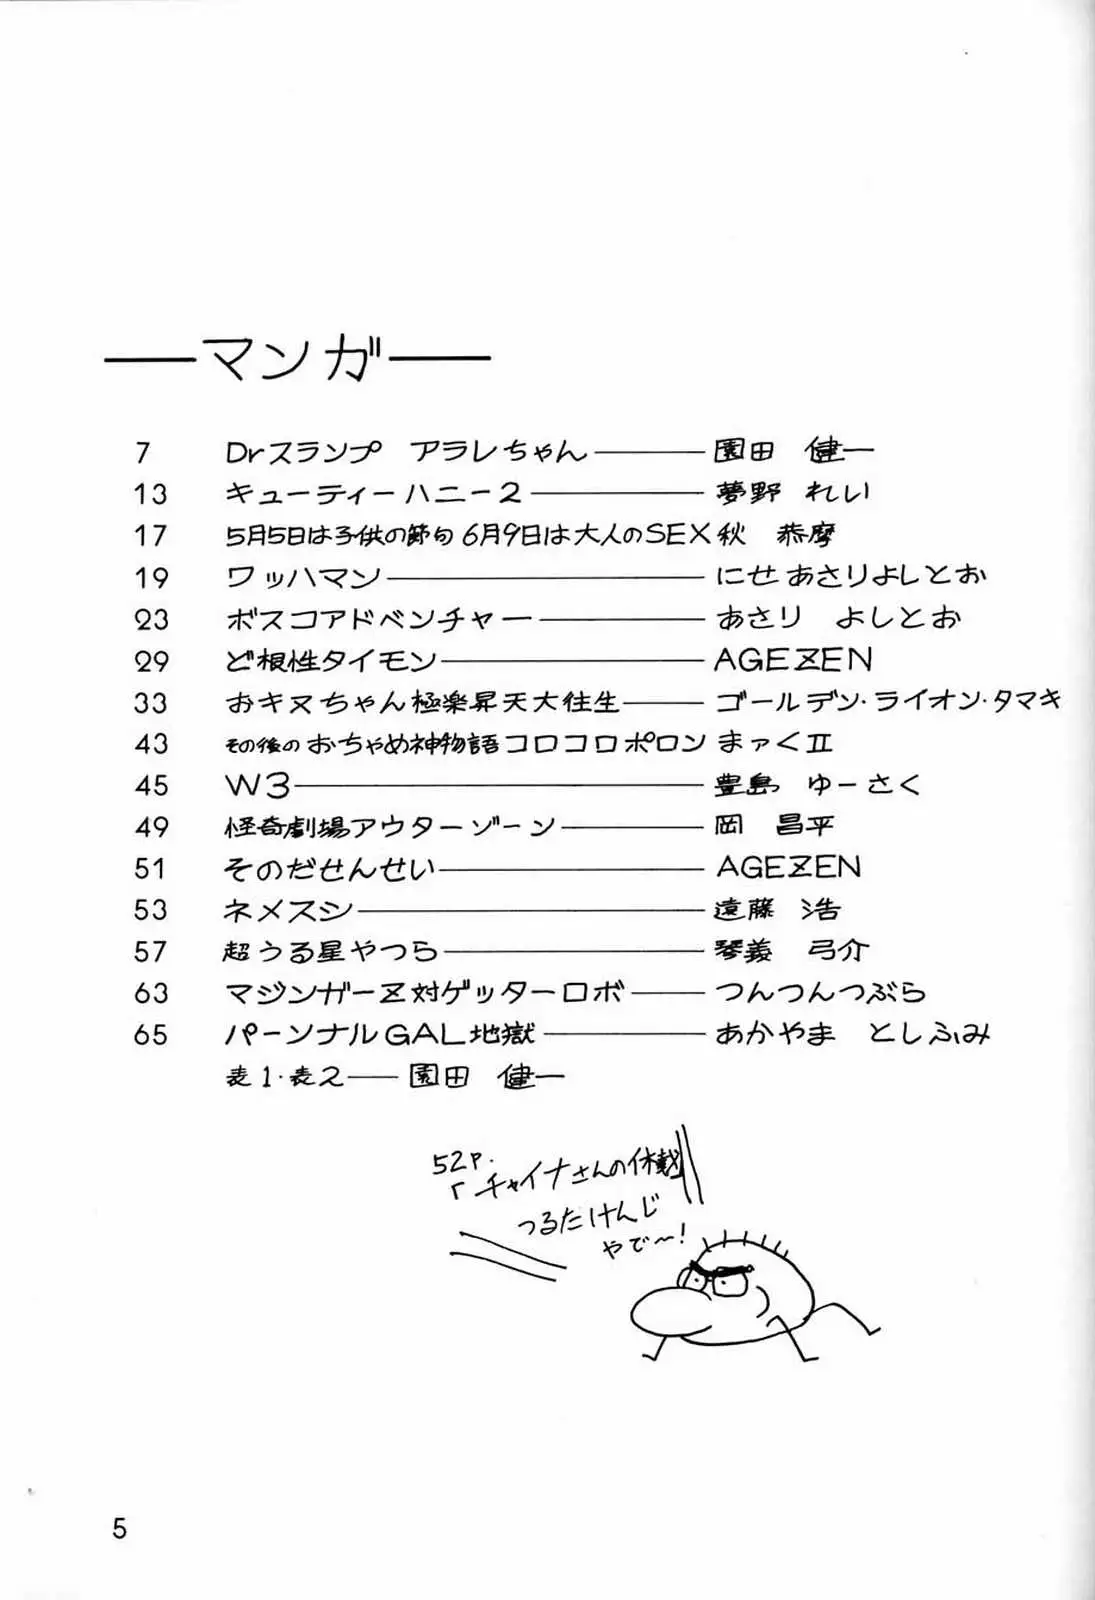 マンガ
7 Drスランプ アラレちゃん 園田 健一
13 キューティーハニー2 夢野 れい
17 5月5日は子供の節句6月9日は大人のSEX 秋 恭摩
19 ワッハマン にせ あさりよしとお
23 ボスコアドベンチャー あさり よしとお
29 ど根性タイモン AGEZEN
33 おキヌちゃん極楽昇天大往生 ゴールデン・ライオン・タマキ
43 その後のおちゃめ神物語コロコロポロン まァくII
45 W3 豊島 ゆーさく
49 怪奇劇場アウターゾーン 岡 昌平
51 そのだせんせい AGEZEN
53 ネメスシ 遠藤 浩
57 超うる星やつら 琴義 弓介
63 マジンガーZ対ゲッターロボ つんつんつぶら
65 パーソナルGAL地獄 あかやま としふみ
表1・表2 園田 健一
52P.
「チャイナさんの休載」
つるたけんじ
やで〜!
5